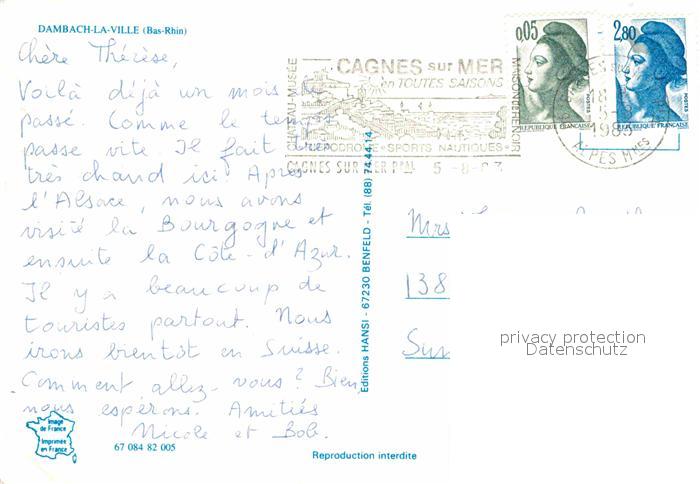 DAMBACH-LA-VILLE (Bas-Rhin)
Chère Thérèse,
Voilà déjà un mois de
passé. Comme le temps
passe vite. Il fait bien
très chaud ici. Après
l'Alsace, nous avons
visité la Bourgogne et
ensuite la Côte-d'Azur.
Il y a beaucoup de
touristes partout. Nous
irons bientôt en Suisse.
Comment allez-vous? Bien
nous espérons. Amitiés
Nicole et Bob.
Image
de France
Imprimée
en France
67 084 82 005
Reproduction interdite
Editions HANSI - 67230 BENFELD - Tél. (88) 74.44.14
CHATEAU-MUSEE
CAGNES sur MER
en TOUTES SAISONS
HIPPODROME - SPORTS NAUTIQUES
CAGNES SUR MER P'AL 5-8-83
0,05
REPUBLIQUE FRANÇAISE
2,80
CAGNES SUR
ALPES MMES
Mrs
138
Sun
privacy protection
Datenschutz